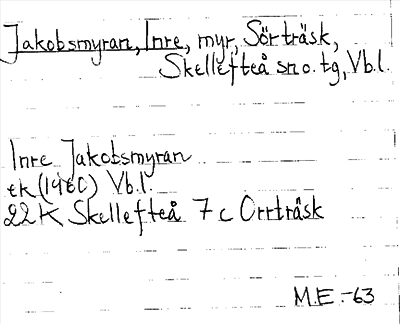 Jakobsmyran, Inre, myr, Sörträsk,
Skellefteå sno. tg, Vb.l.
Inre Jakobsmyran
ek (1960) Vb.l.
22K Skellefteå 7c Orrträsk
M.E.-63